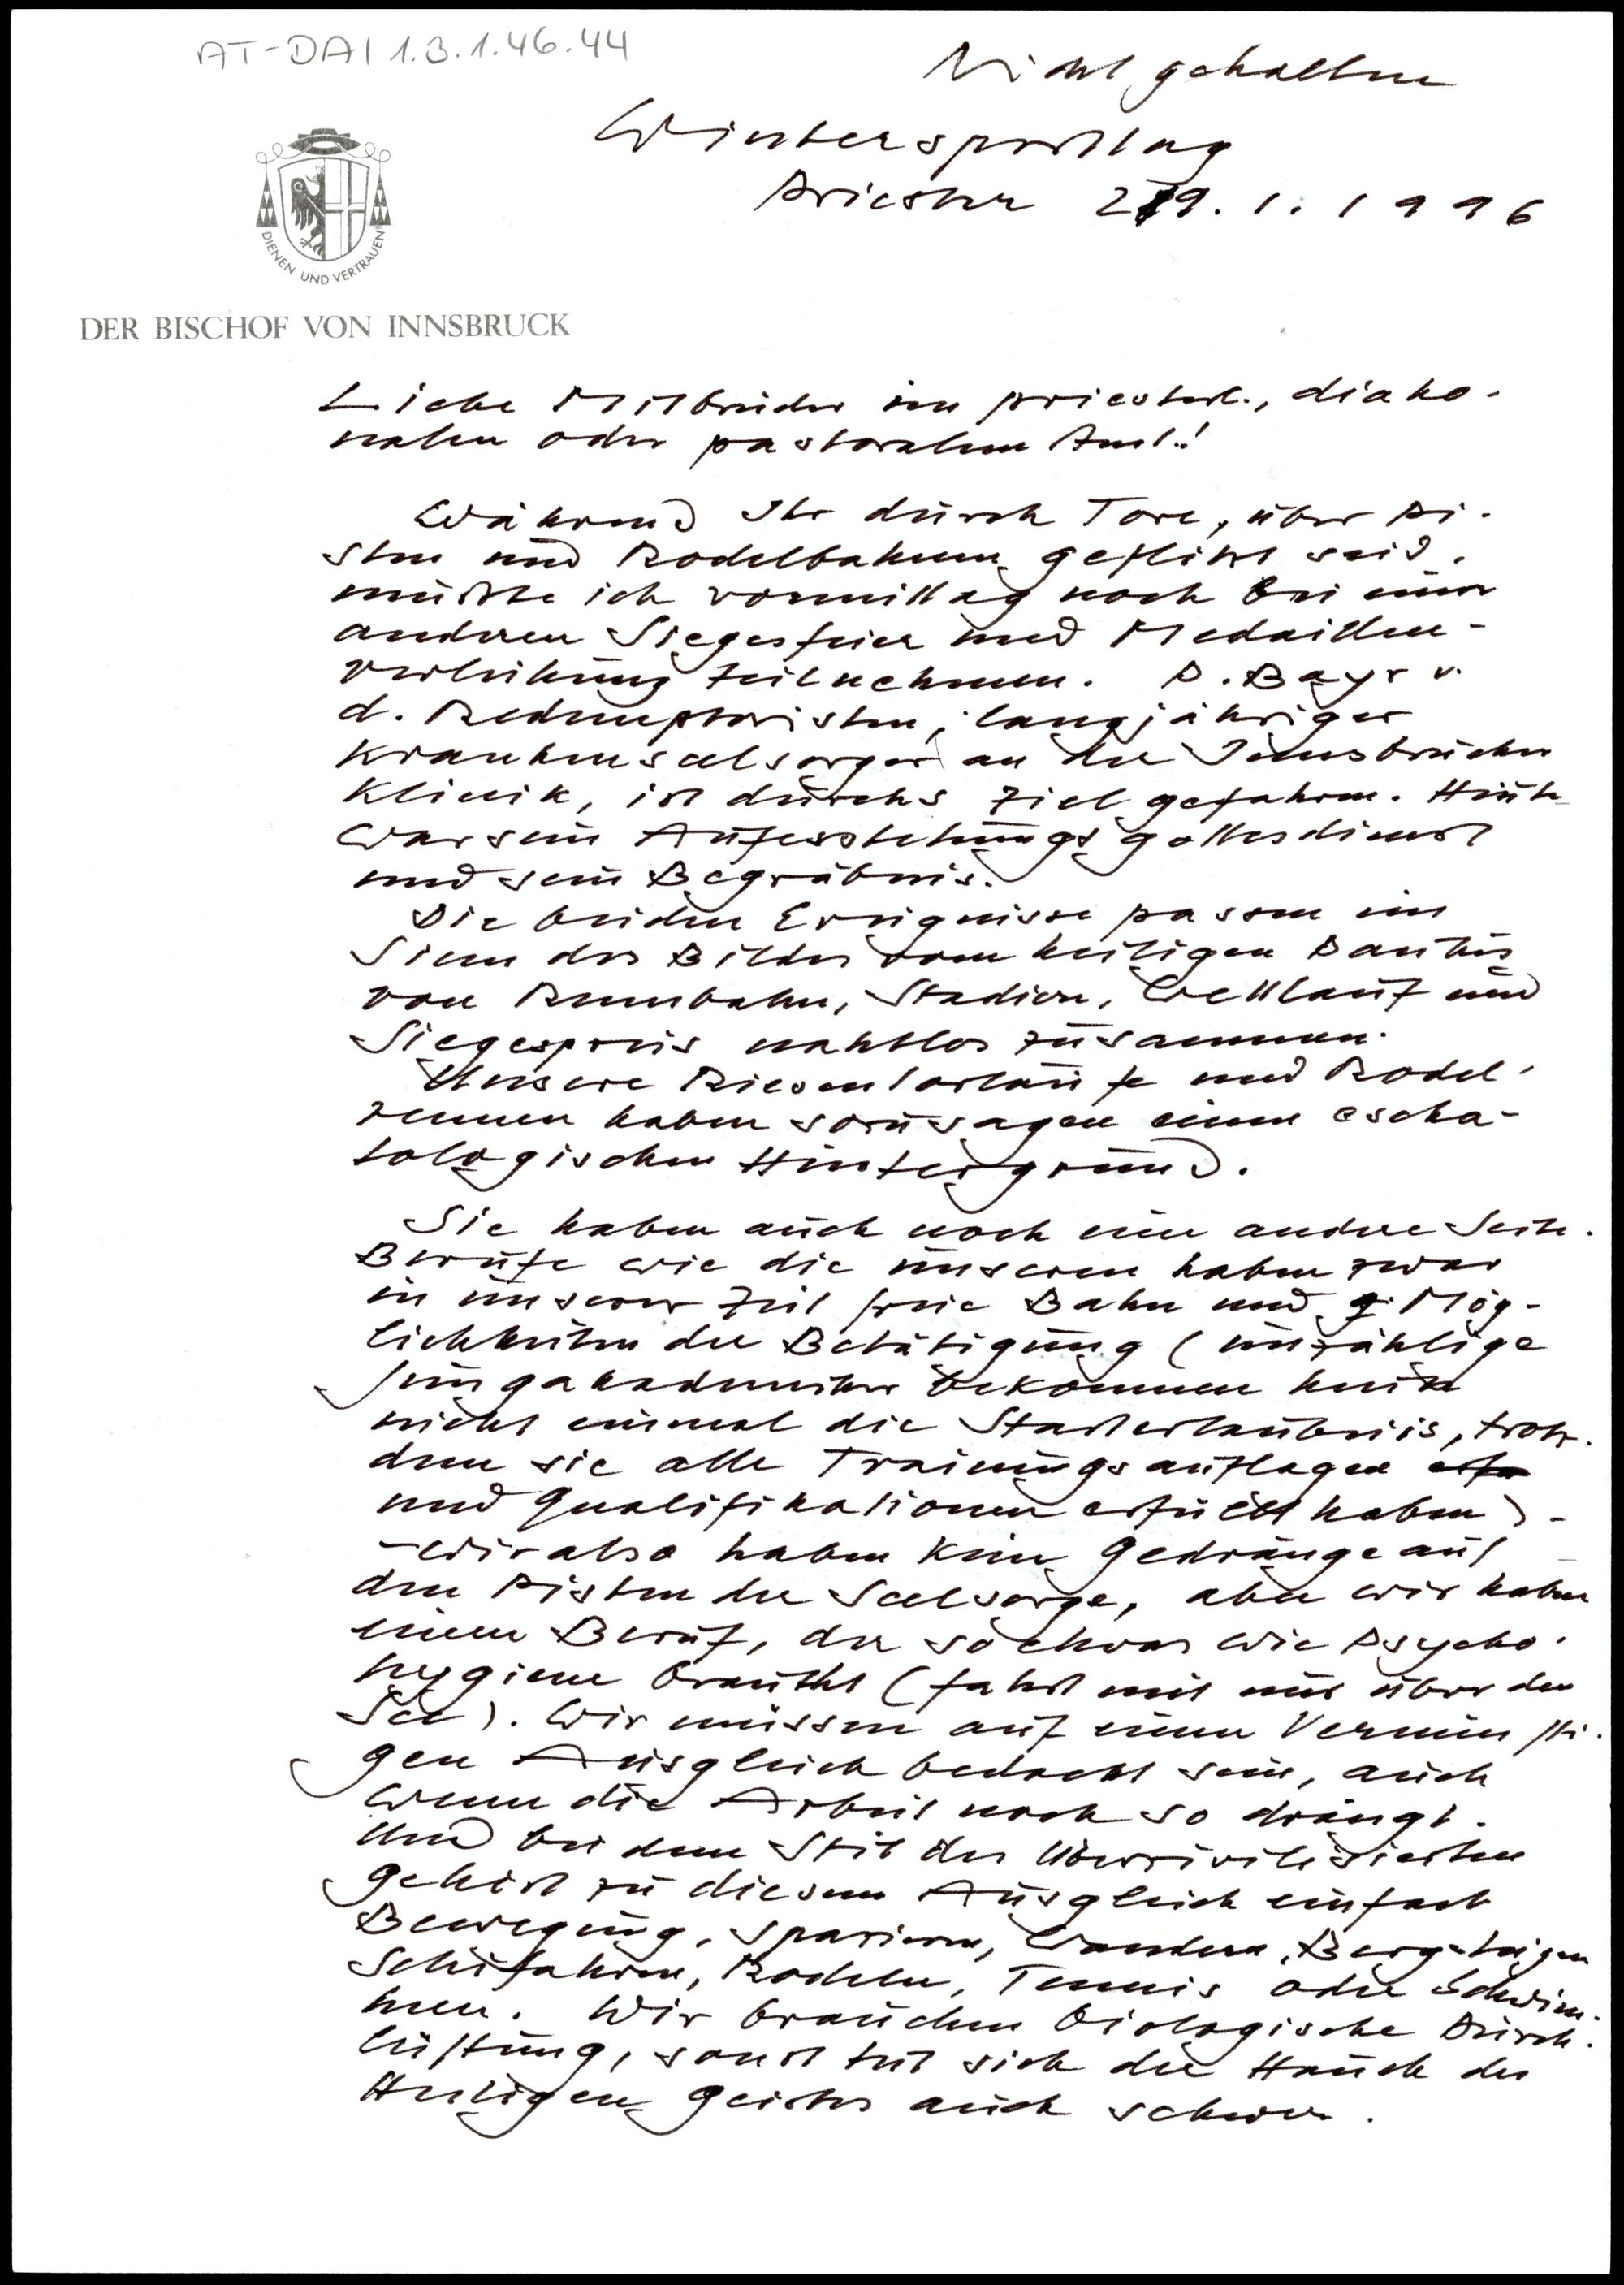 AT-DAI 1.3.1.46.44
Nicht gehalten
Wintersporttag
Priester 29. 1. 1996
DIENEN UND VERTRAUEN
DER BISCHOF VON INNSBRUCK
Liebe Mitbrüder im priesterl., diako-
nalen oder pastoralen Amt!
Während Ihr durch Tore, über Pi-
sten und Rodelbahnen geflitzt seid,
mußte ich vormittag noch bei einer
anderen Siegesfeier und Medaillen-
verleihung teilnehmen. P. Bayr v.
d. Redemptoristen, langjähriger
Krankenseelsorger an der Innsbrucker
Klinik, ist durchs Ziel gefahren. Heute
war sein Auferstehungsgottesdienst
und sein Begräbnis.
Die beiden Ereignisse passen im
Sinn des Bildes vom heiligen Paulus
von Rennbahn, Stadion, Wettlauf und
Siegespreis nahtlos zusammen.
Unsere Riesentorläufe und Rodel-
rennen haben sozusagen einen escha-
tologischen Hintergrund.
Sie haben auch noch eine andere Seite.
Berufe wie die unseren haben zwar
in unserer Zeit freie Bahn und g. Mög-
lichkeiten der Betätigung (unzählige
Jungakademiker bekommen heute
nicht einmal die Starterlaubnis, trotz-
dem sie alle Trainingsauflagen
und Qualifikationen erfüllt haben) -
- wir also haben kein Gedränge auf
den Pisten der Seelsorge, aber wir haben
einen Beruf, der so etwas wie Psycho-
hygiene braucht (fahrt mit mir über den
See). Wir müssen auf einen vernünfti-
gen Ausgleich bedacht sein, auch
wenn die Arbeit noch so drängt.
Und bei dem Stil der Überzivilisierten
gehört zu diesem Ausgleich einfach
Bewegung, Spazieren, Wandern, Bergsteigen
Schifahren, Rodeln, Tennis oder Schwim-
men. Wir brauchen biologische Durch-
lüftung, sonst tut sich der Hauch des
Heiligen Geistes auch schwer.